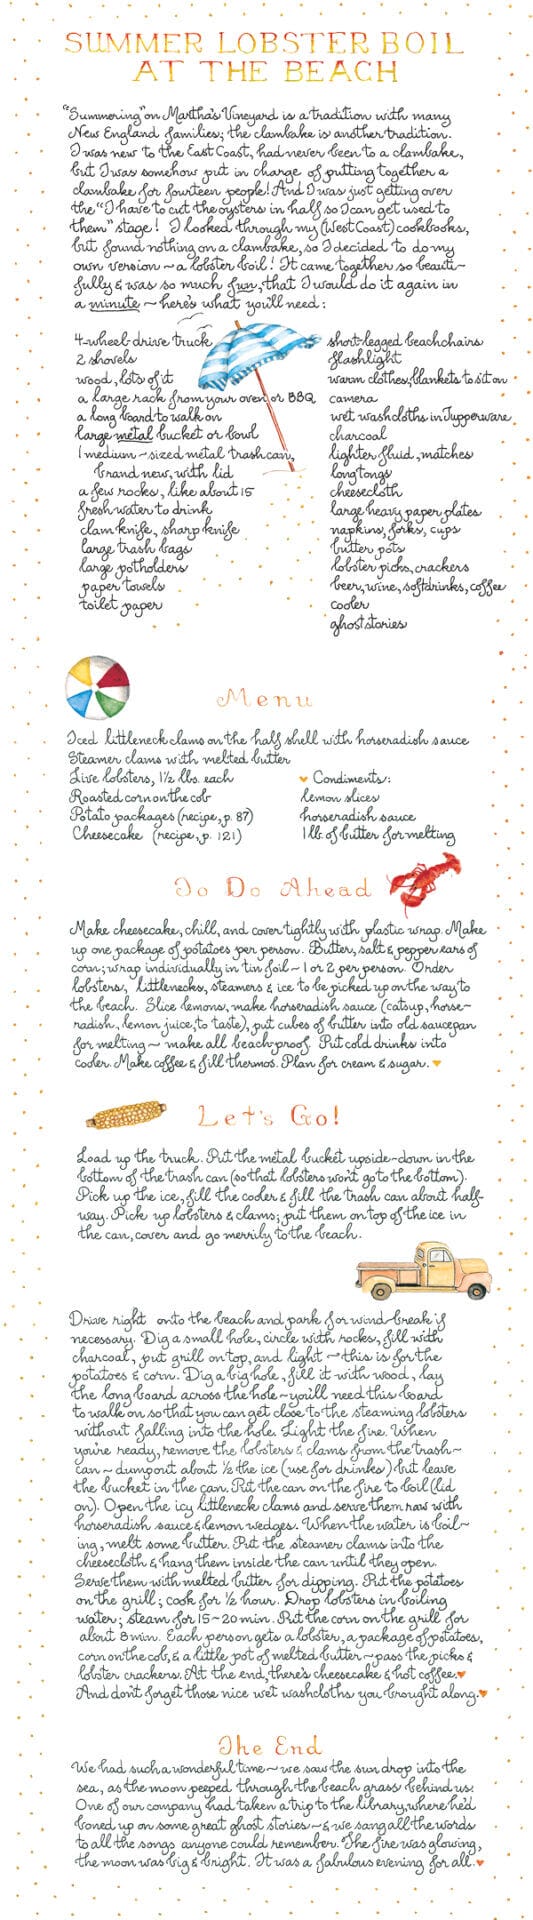 SUMMER LOBSTER BOIL
AT THE BEACH
"Summering" on Martha's Vineyard is a tradition with many
New England families; the clambake is another tradition.
I was new to the East Coast, had never been to a clambake,
but I was somehow put in charge of putting together a
clambake for fourteen people! And I was just getting over
the "I have to cut the oysters in half so I can get used to
them" stage! I looked through my (West Coast) cookbooks,
but found nothing on a clambake, so I decided to do my
own version ~ a lobster boil! It came together so beauti~
fully & was so much fun, that I would do it again in
a minute ~ here's what you'll need:
4-wheel-drive truck
2 shovels
wood, lots of it
a large rack from your oven or BBQ
a long board to walk on
large metal bucket or bowl
1 medium-sized metal trash can,
brand new, with lid
a few rocks, like about 15
fresh water to drink
clam knife, sharp knife
large trash bags
large potholders
paper towels
toilet paper
short-legged beach chairs
flashlight
warm clothes, blankets to sit on
camera
wet washcloths in Tupperware
charcoal
lighter fluid, matches
long tongs
cheesecloth
large heavy paper plates
napkins, forks, cups
butter pots
lobster picks, crackers
beer, wine, soft drinks, coffee
cooler
ghost stories
Menu
Iced littleneck clams on the half shell with horseradish sauce
Steamer clams with melted butter
Live lobsters, 1½ lbs. each
Roasted corn on the cob
Potato packages (recipe, p. 87)
Cheesecake (recipe, p. 121)
Condiments:
lemon slices
horseradish sauce
1 lb. of butter for melting
To Do Ahead
Make cheesecake, chill, and cover tightly with plastic wrap. Make
up one package of potatoes per person. Butter, salt & pepper ears of
corn; wrap individually in tin foil ~ 1 or 2 per person. Order
lobsters, littlenecks, steamers & ice to be picked up on the way to
the beach. Slice lemons, make horseradish sauce (catsup, horse~
radish, lemon juice, to taste), put cubes of butter into old saucepan
for melting ~ make all beach-proof. Put cold drinks into
cooler. Make coffee & fill thermos. Plan for cream & sugar.
Let's Go!
Load up the truck. Put the metal bucket upside-down in the
bottom of the trash can (so that lobsters won't go to the bottom).
Pick up the ice, fill the cooler & fill the trash can about half-
way. Pick up lobsters & clams; put them on top of the ice in
the can, cover and go merrily to the beach.
Drive right onto the beach and park for wind-break if
necessary. Dig a small hole, circle with rocks, fill with
charcoal, put grill on top, and light ~ this is for the
potatoes & corn. Dig a big hole, fill it with wood, lay
the long board across the hole ~ you'll need this board
to walk on so that you can get close to the steaming lobsters
without falling into the hole. Light the fire. When
you're ready, remove the lobsters & clams from the trash~
can ~ dump out about ½ the ice (use for drinks) but leave
the bucket in the can. Put the can on the fire to boil (lid
on). Open the icy littleneck clams and serve them raw with
horseradish sauce & lemon wedges. When the water is boil~
ing, melt some butter. Put the steamer clams into the
cheesecloth & hang them inside the can until they open.
Serve them with melted butter for dipping. Put the potatoes
on the grill; cook for ½ hour. Drop lobsters in boiling
water; steam for 15~20 min. Put the corn on the grill for
about 8 min. Each person gets a lobster, a package of potatoes,
corn on the cob, & a little pot of melted butter ~ pass the picks &
lobster crackers. At the end, there's cheesecake & hot coffee.
And don't forget those nice wet washcloths you brought along.
The End
We had such a wonderful time ~ we saw the sun drop into the
sea, as the moon peeped through the beach grass behind us.
One of our company had taken a trip to the library, where he'd
boned up on some great ghost stories ~ & we sang all the words
to all the songs anyone could remember. The fire was glowing,
the moon was big & bright. It was a fabulous evening for all.